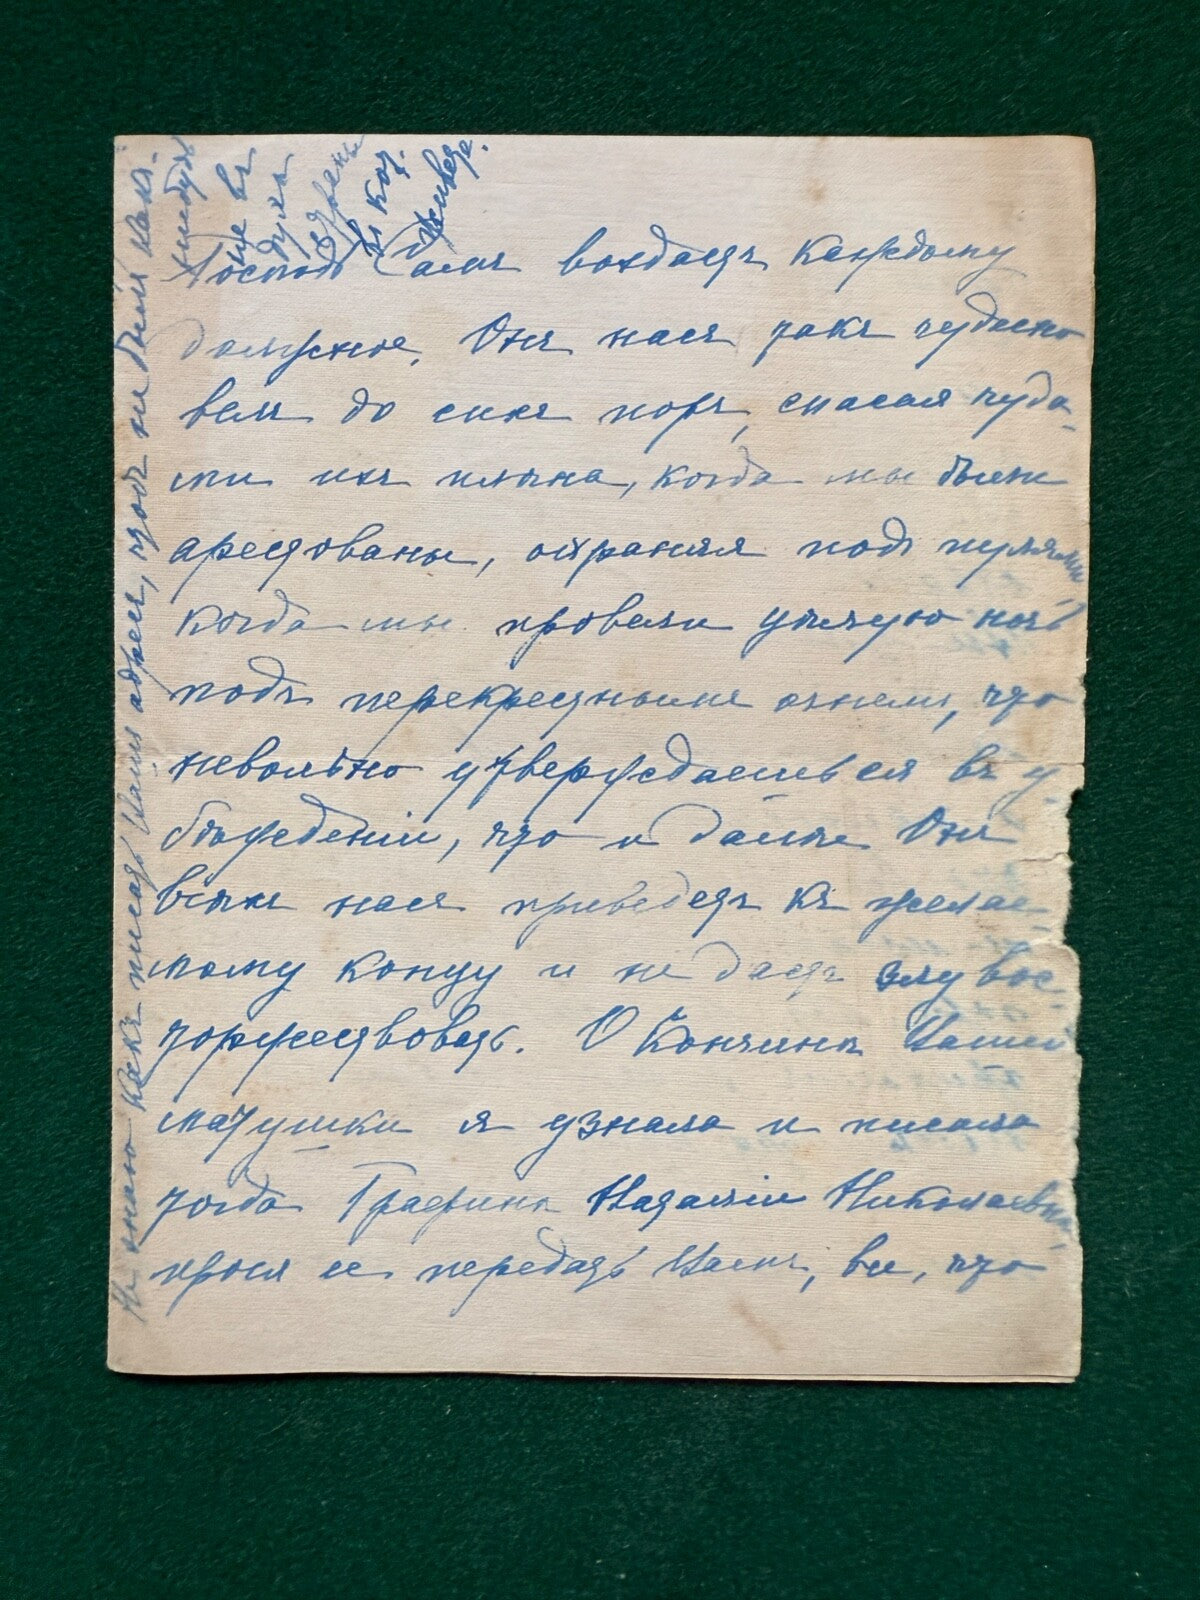 Господь Самъ воздастъ каждому
должное. Онъ насъ такъ чудесно
велъ до сихъ поръ, спасая чуда-
ми изъ плѣна, когда мы были
арестованы, охраняя подъ пулями
когда мы провели цѣлую ночь
подъ перекрестнымъ огнемъ, что
невольно утверждаешься въ у-
бѣжденіи, что и далѣе Онъ
всѣхъ насъ приведетъ къ желае-
мому концу и не дастъ злу вос-
торжествовать. О Кончинѣ Вашей
матушки я узнала и писала
тогда Графинѣ Наталіи Николаевнѣ
прося ее передать Вамъ, все, что
Не знаю какъ писать Вашъ адресъ, чтобъ не былъ